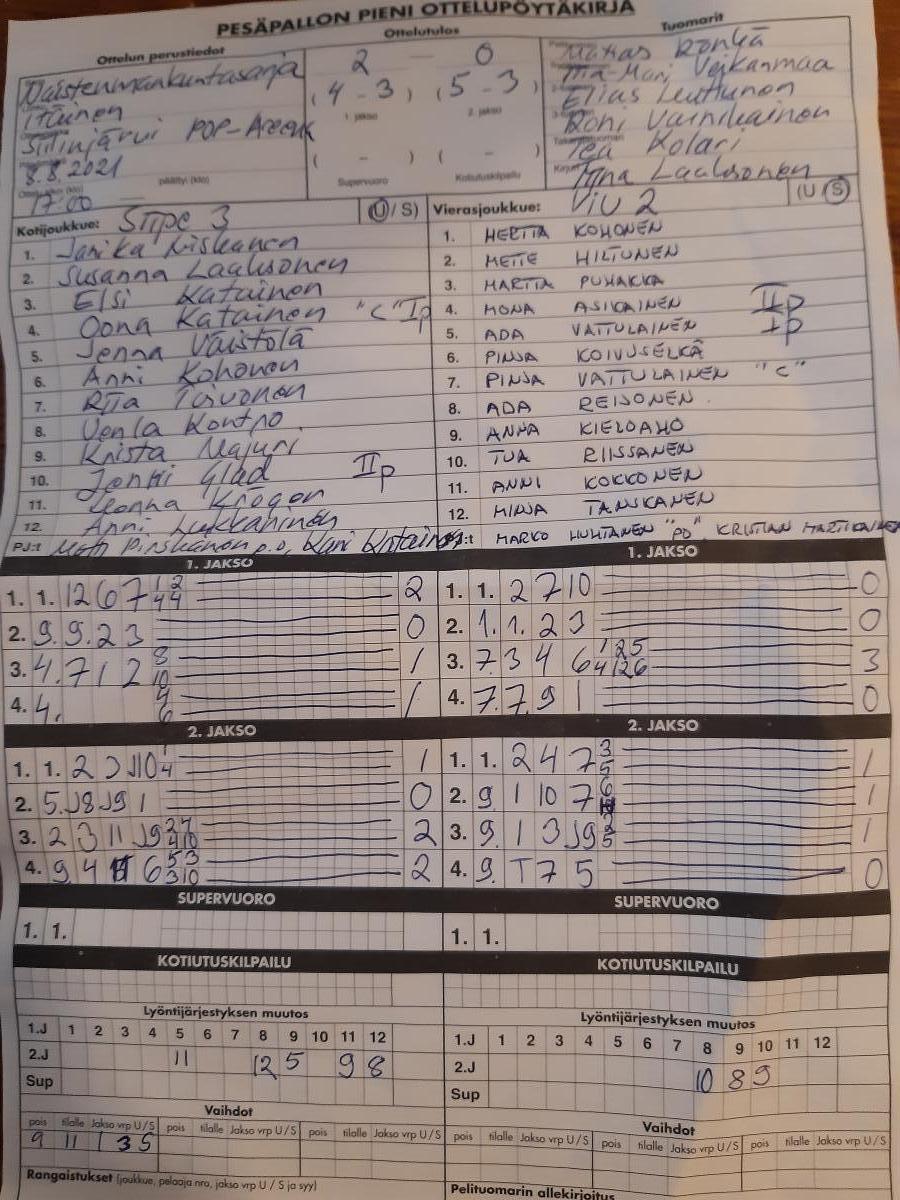 PESÄPALLON PIENI OTTELUPÖYTÄKIRJA
Ottelun perustiedot
Ottelutulos
Tuomarit
Naistenmaakuntasarja
Itäinen
Siilinjärvi POP-Areena
8.8.2021
päättyi (klo)
17:00
2 — 0
(4 - 3) (5 - 3)
1. jakso 2. jakso
( - ) ( - )
Supervuoro Kotiutuskilpailu
Matias Rönkä
Tiia-Mari Veikanmaa
Elias Leuttunen
Roni Vainikainen
Tea Kolari
Tiina Laaksonen
Kotijoukkue: SiiPe 3 (U/S)
1. Janika Niskanen
2. Susanna Laaksonen
3. Elsi Katainen
4. Oona Katainen "C" Ip
5. Jenna Väistölä
6. Anni Kohonen
7. Riia Toivonen
8. Venla Kontro
9. Krista Majuri
10. Jenni Glad IIp
11. Jonna Kroger
12. Anni Lukkarinen
Vierasjoukkue: ViU 2 (U/S)
1. HERTTA KOHONEN
2. METTE HILTUNEN
3. MARTTA PUHAKKA
4. MONA ASIKAINEN IIp
5. ADA VATTULAINEN Ip
6. PINJA KOIVUSELKÄ
7. PINJA VATTULAINEN "C"
8. ADA REIJONEN
9. ANNA KIELOAHO
10. TUA RIISSANEN
11. ANNI KOKKONEN
12. MINJA TANSKANEN
PJ:t MARKO HUHTANEN "PJ", KRISTIAN MARTIKAINEN
1. JAKSO
1. 1. 1 2 6 7 1 2 4 4 2
2. 9. 9. 2 3 0
3. 4. 7 1 2 8 10 1
4. 4. 4 6 1
1. JAKSO
1. 1. 2 7 10 0
2. 1. 1. 2 3 0
3. 7 3 4 6 1 2 5 4 12 6 3
4. 7. 7. 9 1 0
2. JAKSO
1. 1. 2 3 J10 1 4 1
2. 5. J8 J9 1 0
3. 2 3 11 J9 2
4. 9. 4 6 5 3 3 10 2
2. JAKSO
1. 1. 2 4 7 3 5 1
2. 9 1 10 7 6 1
3. 9. 1 3 J9 1
4. 9. T 7 5 0
SUPERVUORO
1. 1.
SUPERVUORO
1. 1.
KOTIUTUSKILPAILU
KOTIUTUSKILPAILU
Lyöntijärjestyksen muutos
1.J 1 2 3 4 5 6 7 8 9 10 11 12
2.J 11 12 5 9 8
Sup
Lyöntijärjestyksen muutos
1.J 1 2 3 4 5 6 7 8 9 10 11 12
2.J 10 8 9
Sup
Vaihdot
pois tilalle Jakso vrp U/S pois tilalle Jakso vrp U/S pois tilalle Jakso vrp U/S
9 11 1 3 S
Vaihdot
pois tilalle Jakso vrp U/S pois tilalle Jakso vrp U/S pois tilalle Jakso vrp U/S
Rangaistukset (joukkue, pelaaja nro, jakso vrp U / S ja syy)
Pelituomarin allekirjoitus